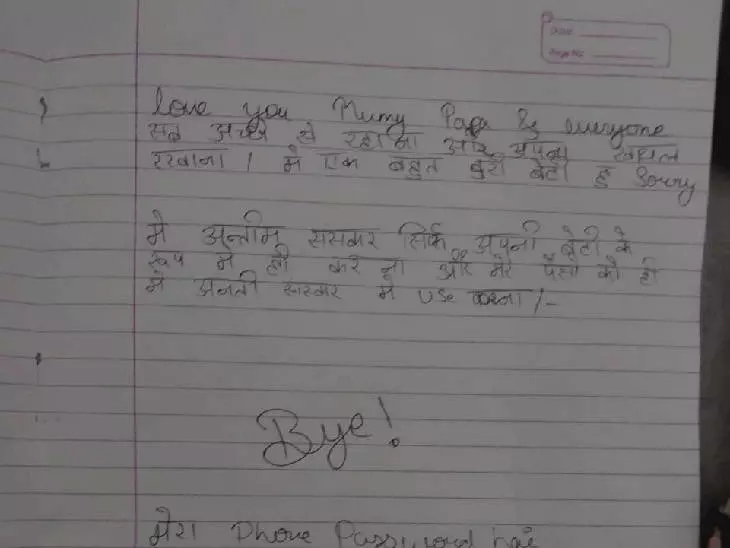 Date
Page No.
Love you Mumy Papa & everyone
सब अच्छे से रहाना और अपना ख्याल
रखाना । मे एक बहुत बुरी बेटी हु Sorry
मे अन्तीम ससकार सिर्फ अपनी बेटी के
रूप मे ही करना और मेरे पैसो को ही
मे अनती सास्कार मे use करना /-
Bye!
मेरा Phone Password hai